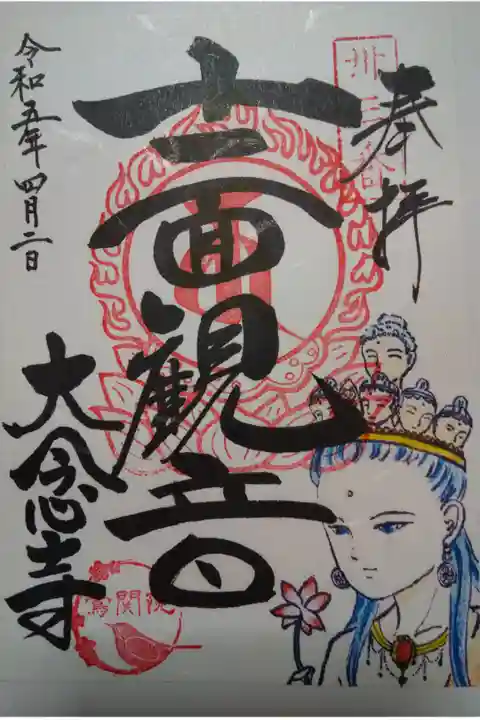 奉拝
十一面観音
令和五年四月二日
大念寺
卅三番
鶯関院